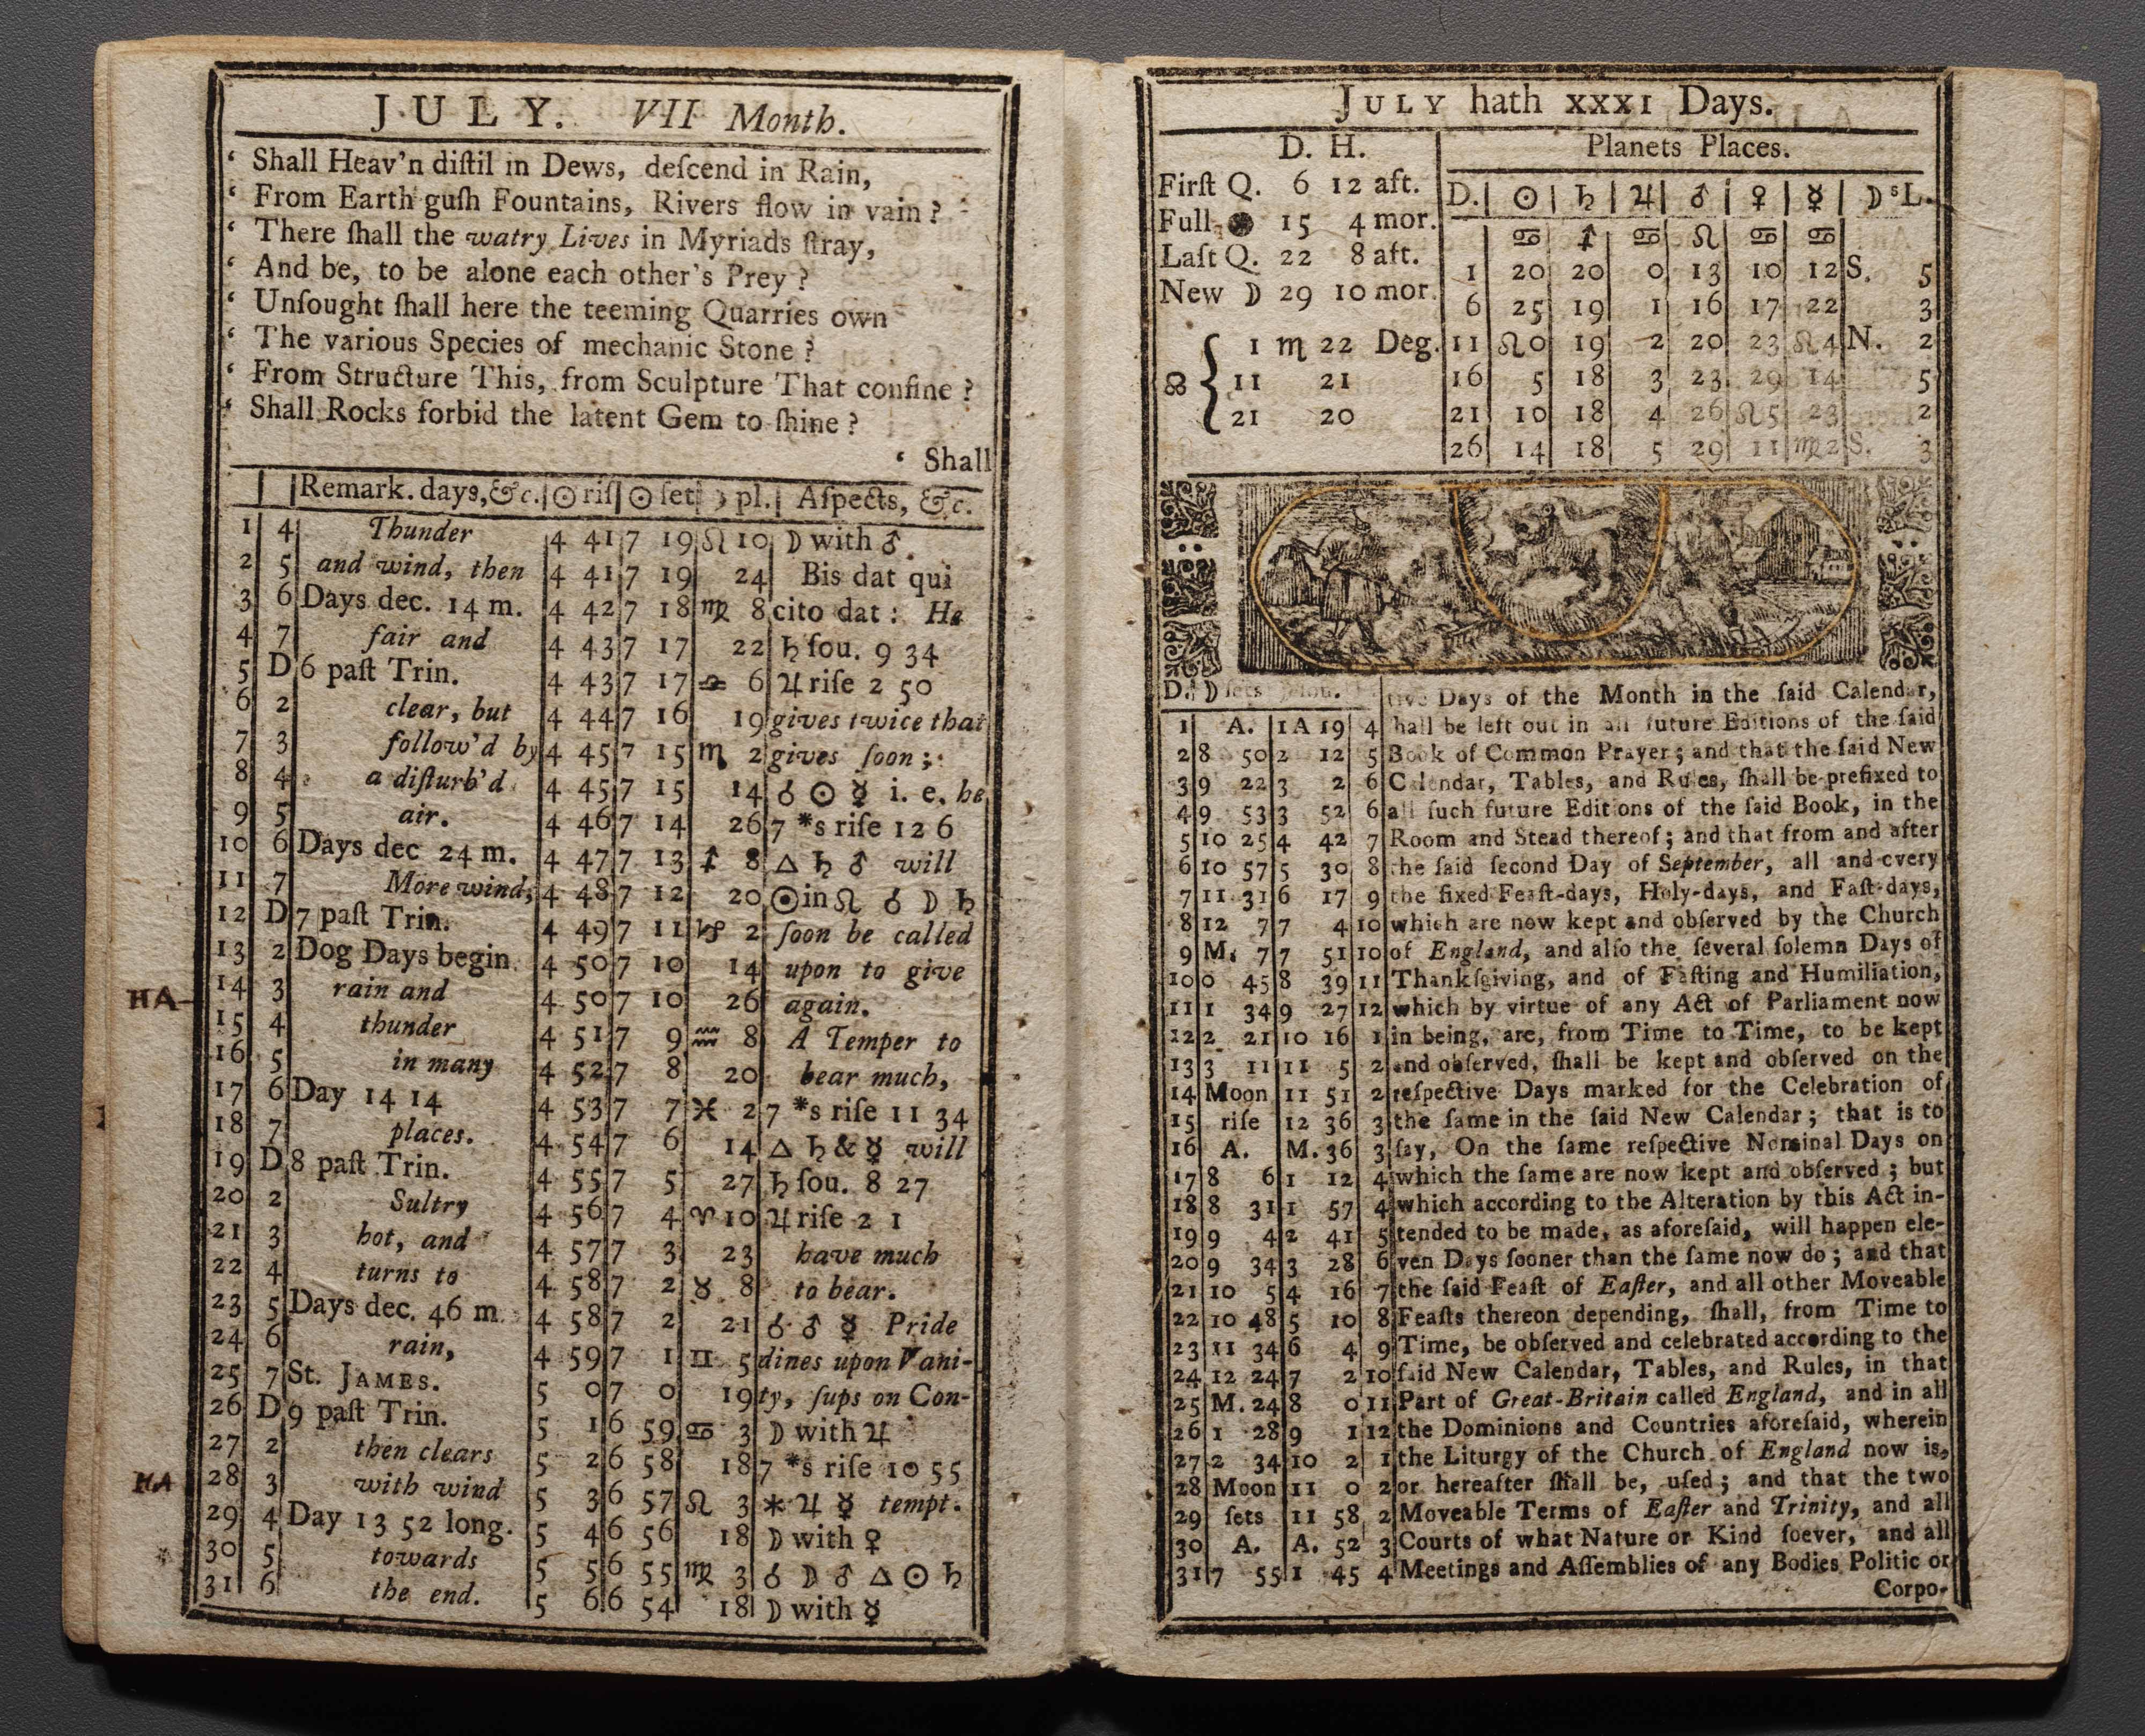 JULY. VII Month.
‘ Shall Heav'n diſtil in Dews, deſcend in Rain,
‘ From Earth guſh Fountains, Rivers flow in vain?
‘ There ſhall the watry Lives in Myriads ſtray,
‘ And be, to be alone each other's Prey?
‘ Unſought ſhall here the teeming Quarries own
‘ The various Species of mechanic Stone?
‘ From Structure This, from Sculpture That confine?
‘ Shall Rocks forbid the latent Gem to ſhine?
‘ Shall
Remark. days, &c. ☉ riſ ☉ ſet ☽ pl. Aſpects, &c.
1 4 Thunder 4 41 7 19 ♌ 10 ☽ with ♂
2 5 and wind, then 4 41 7 19 24 Bis dat qui
3 6 Days dec. 14 m. 4 42 7 18 ♍ 8 cito dat: He
4 7 fair and 4 43 7 17 22 ♄ ſou. 9 34
5 D 6 paſt Trin. 4 43 7 17 ♎ 6 ♃ riſe 2 50
6 2 clear, but 4 44 7 16 19 gives twice that
7 3 follow'd by 4 45 7 15 ♏ 2 gives ſoon;
8 4 a diſturb'd 4 45 7 15 14 ☌ ☉ ☿ i. e. he
9 5 air. 4 46 7 14 26 7 *s riſe 12 6
10 6 Days dec 24 m. 4 47 7 13 ♐ 8 △ ♄ ♂ will
11 7 More wind, 4 48 7 12 20 ☉ in ♌ ☌ ☽ ♄
12 D 7 paſt Trin. 4 49 7 11 ♑ 2 ſoon be called
13 2 Dog Days begin 4 50 7 10 14 upon to give
HA 14 3 rain and 4 50 7 10 26 again.
15 4 thunder 4 51 7 9 ♒ 8 A Temper to
16 5 in many 4 52 7 8 20 bear much,
17 6 Day 14 14 4 53 7 7 ♓ 2 7 *s riſe 11 34
18 7 places. 4 54 7 6 14 △ ♄ & ☿ will
19 D 8 paſt Trin. 4 55 7 5 27 ♄ ſou. 8 27
20 2 Sultry 4 56 7 4 ♈ 10 ♃ riſe 2 1
21 3 hot, and 4 57 7 3 23 have much
22 4 turns to 4 58 7 2 ♉ 8 to bear.
23 5 Days dec. 46 m. 4 58 7 2 21 ☌ ♂ ☿ Pride
24 6 rain, 4 59 7 1 ♊ 5 dines upon Vani-
25 7 St. JAMES. 5 0 7 0 19 ty, ſups on Con-
26 D 9 paſt Trin. 5 1 6 59 ♋ 3 ☽ with ♃
27 2 then clears 5 2 6 58 18 7 *s riſe 10 55
HA 28 3 with wind 5 3 6 57 ♌ 3 ⚹ ♃ ☿ tempt.
29 4 Day 13 52 long. 5 4 6 56 18 ☽ with ♀
30 5 towards 5 5 6 55 ♍ 3 ☌ ☽ ♂ △ ☉ ♄
31 6 the end. 5 6 6 54 18 ☽ with ☿
JULY hath XXXI Days.
D. H.
Firſt Q. 6 12 aft.
Full ● 15 4 mor.
Laſt Q. 22 8 aft.
New ☽ 29 10 mor.
☊ { 1 ♏ 22 Deg.
11 21
21 20
Planets Places.
D. ☉ ♄ ♃ ♂ ♀ ☿ ☽ˢ L.
♋ ♐ ♋ ♌ ♋ ♋
1 20 20 0 13 10 12 S. 5
6 25 19 1 16 17 22 3
11 ♌ 0 19 2 20 23 ♌ 4 N. 2
16 5 18 3 23 29 14 5
21 10 18 4 26 ♌ 5 23 2
26 14 18 5 29 11 ♍ 2 S. 3
D. ☽ ſets ſou.
1 A. 1 A 19 4
2 8 50 2 12 5
3 9 22 3 2 6
4 9 53 3 52 6
5 10 25 4 42 7
6 10 57 5 30 8
7 11 31 6 17 9
8 12 7 7 4 10
9 M. 7 7 51 10
10 0 45 8 39 11
11 1 34 9 27 12
12 2 21 10 16 1
13 3 11 11 5 2
14 Moon 11 51 2
15 riſe 12 36 3
16 A. M. 36 3
17 8 6 1 12 4
18 8 31 1 57 4
19 9 4 2 41 5
20 9 34 3 28 6
21 10 5 4 16 7
22 10 48 5 10 8
23 11 34 6 4 9
24 12 24 7 2 10
25 M. 24 8 0 11
26 1 28 9 1 12
27 2 34 10 2 1
28 Moon 11 0 2
29 ſets 11 58 2
30 A. A. 52 3
31 7 55 1 45 4
tive Days of the Month in the ſaid Calendar,
hall be left out in all future Editions of the ſaid
Book of Common Prayer; and that the ſaid New
Calendar, Tables, and Rules, ſhall be prefixed to
all ſuch future Editions of the ſaid Book, in the
Room and Stead thereof; and that from and after
the ſaid ſecond Day of September, all and every
the fixed Feaſt-days, Holy-days, and Faſt-days,
which are now kept and obſerved by the Church
of England, and alſo the ſeveral ſolemn Days of
Thankſgiving, and of Faſting and Humiliation,
which by virtue of any Act of Parliament now
in being, are, from Time to Time, to be kept
and obſerved, ſhall be kept and obſerved on the
reſpective Days marked for the Celebration of
the ſame in the ſaid New Calendar; that is to
ſay, On the ſame reſpective Nominal Days on
which the ſame are now kept and obſerved; but
which according to the Alteration by this Act in-
tended to be made, as aforeſaid, will happen ele-
ven Days ſooner than the ſame now do; and that
the ſaid Feaſt of Eaſter, and all other Moveable
Feaſts thereon depending, ſhall, from Time to
Time, be obſerved and celebrated according to the
ſaid New Calendar, Tables, and Rules, in that
Part of Great-Britain called England, and in all
the Dominions and Countries aforeſaid, wherein
the Liturgy of the Church of England now is,
or hereafter ſhall be, uſed; and that the two
Moveable Terms of Eaſter and Trinity, and all
Courts of what Nature or Kind ſoever, and all
Meetings and Aſſemblies of any Bodies Politic or
Corpo-